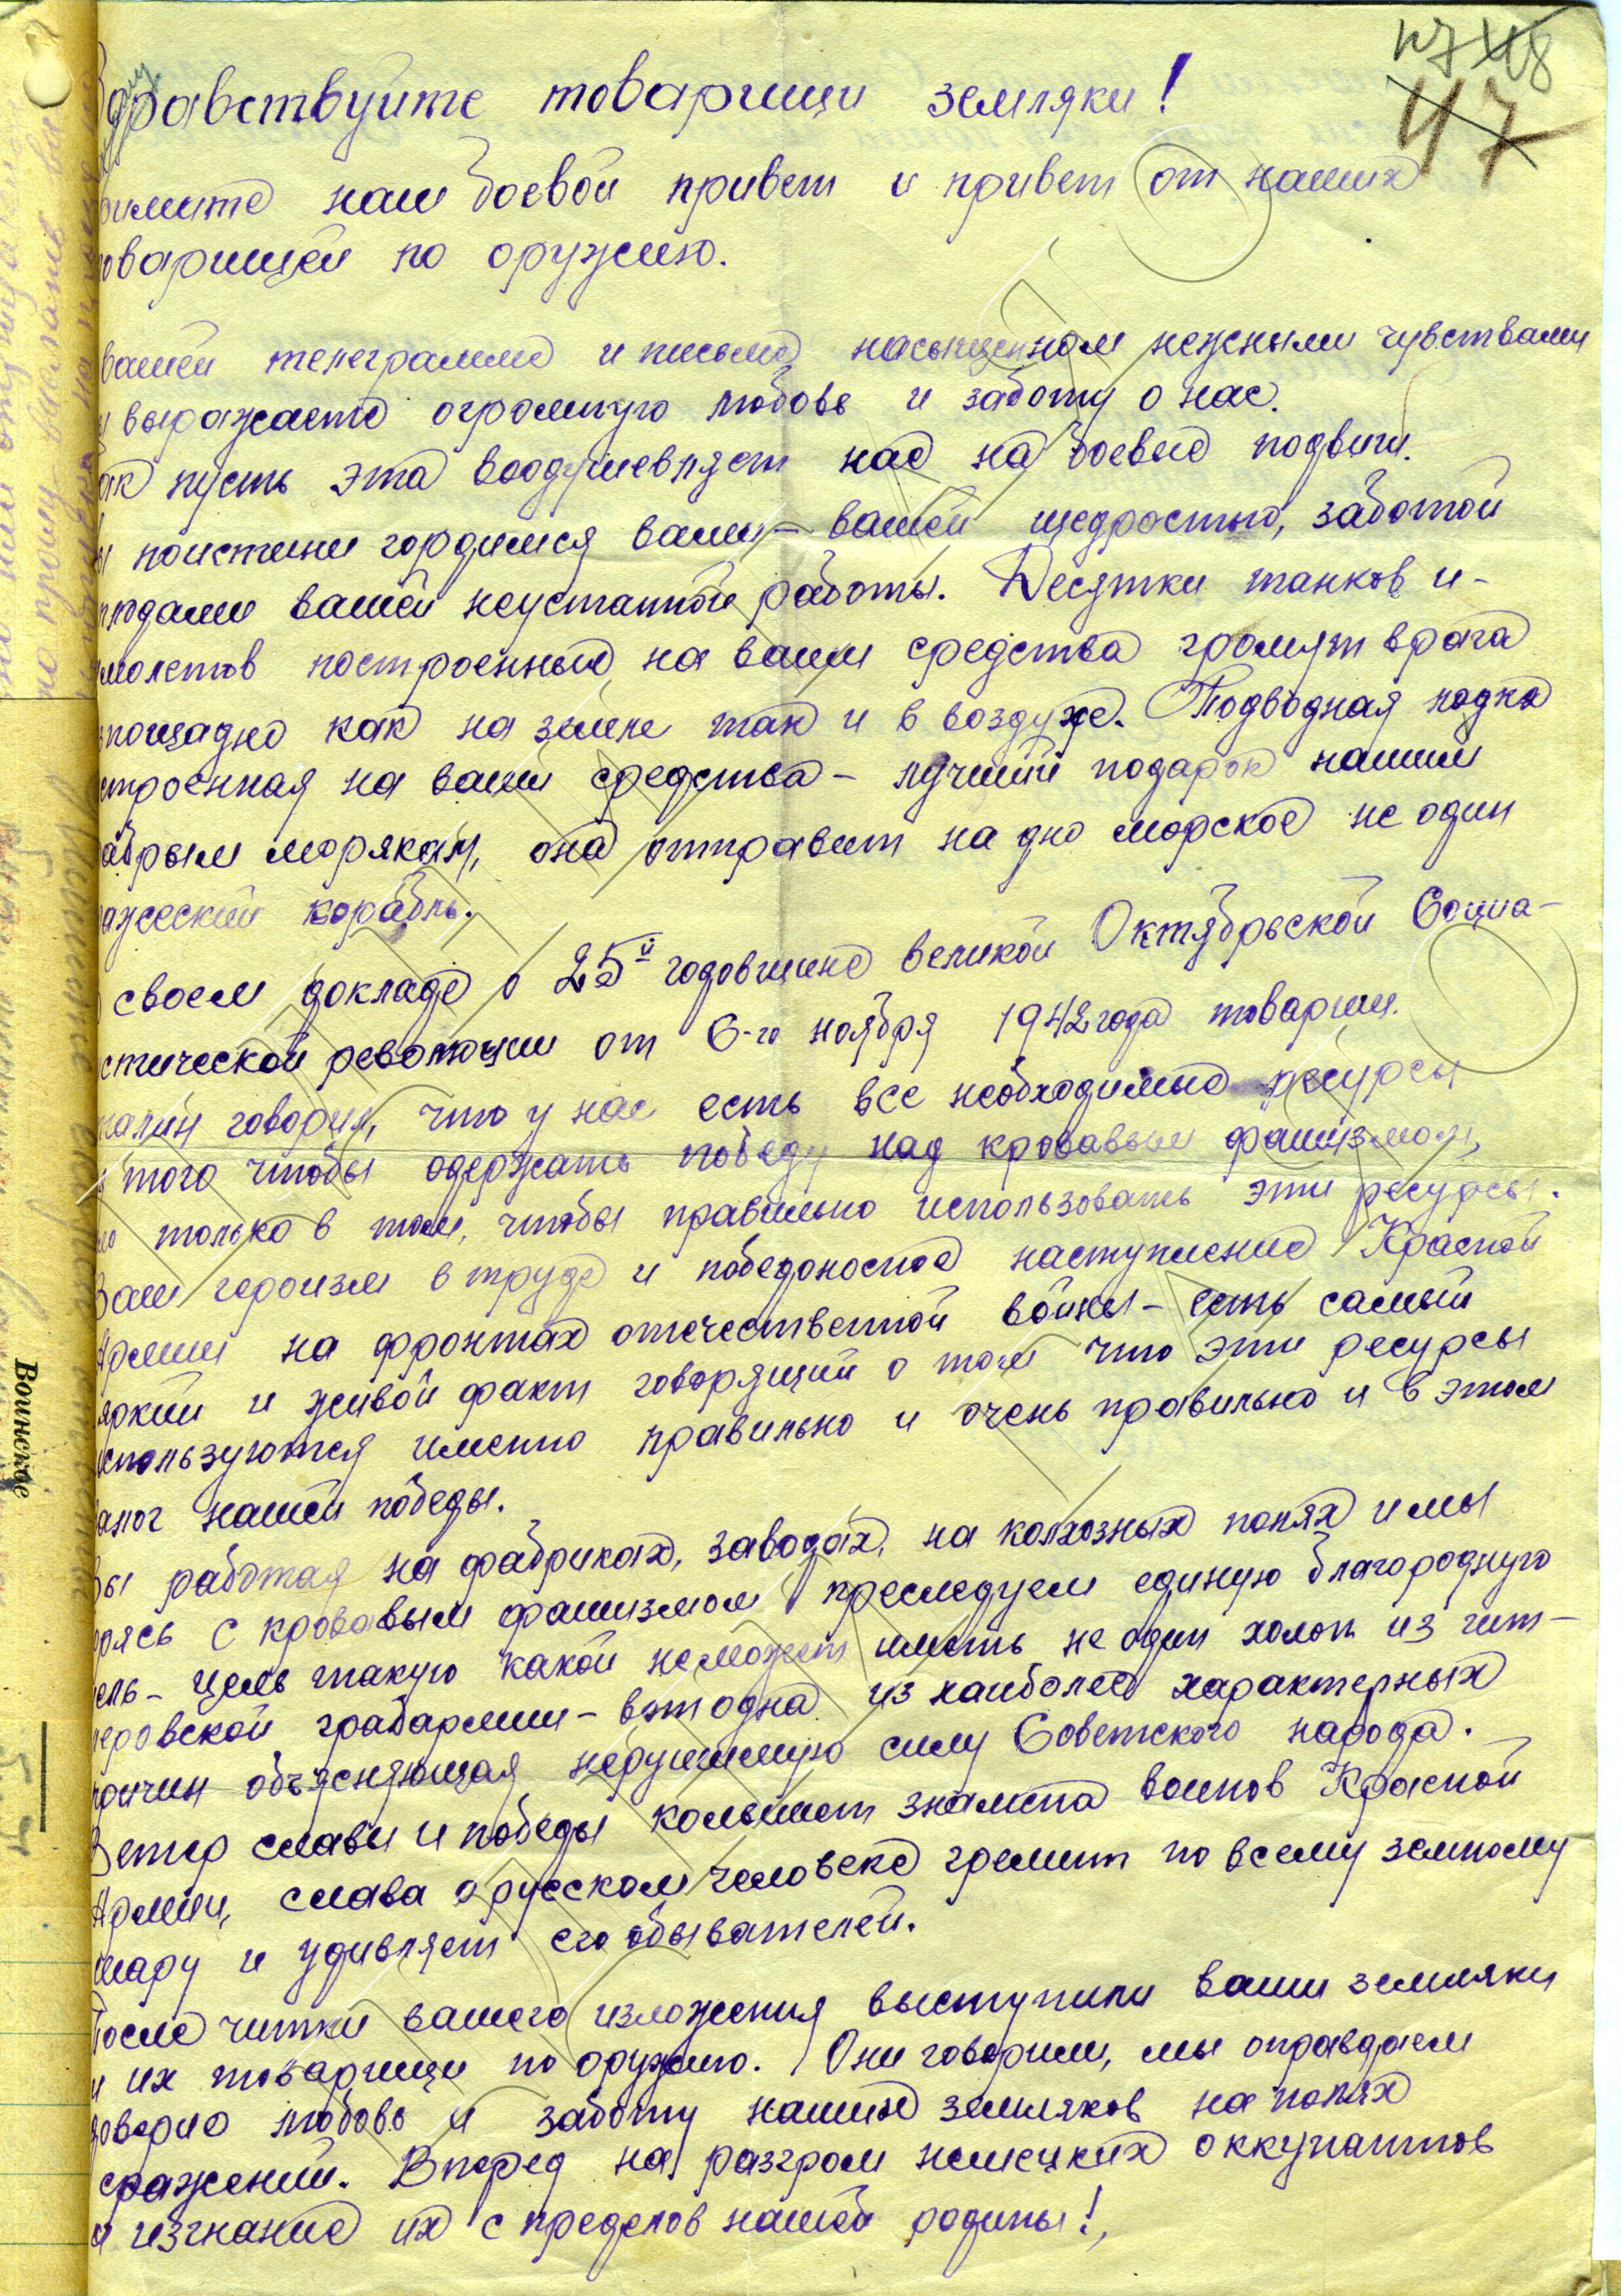 47
Здравствуйте товарищи земляки!
римите наш боевой привет и привет от наших
оварищей по оружию.
вашей телеграмме и письме насыщенном нежными чувствами
ы выражаете огромную любовь и заботу о нас.
ак пусть эта воодушевляет нас на боевые подвиги.
ы поистине гордимся вами – вашей щедростью, заботой
плодами вашей неустанной работы. Десятки танков и –
молетов построенные на ваши средства громят врага
спощадно как на земле так и в воздухе. Подводная лодка
строенная на ваши средства – лучший подарок нашим
абрым морякам, она отправит на дно морское не один
ажеский корабль.
своем докладе о 25й годовщине великой Октябрьской Социа–
стической революции от 6-го ноября 1942 года товарищ.
талин говорил, что у нас есть все необходимые ресурсы
я того чтобы одержать победу над кровавым фашизмом,
ло только в том, чтобы правильно использовать эти ресурсы.
Ваш героизм в труде и победоносное наступление Красной
Армии на фронтах отечественной войны – есть самый
яркий и живой факт говорящий о том что эти ресурсы
используются именно правильно и очень правильно и в этом
залог нашей победы.
Вы работая на фабриках, заводах, на колхозных полях и мы
орясь с кровавым фашизмом преследуем единую благородную
ель – цель такую какой не может иметь не один холоп из гит–
леровской грабармии – вот одна из наиболее характерных
причин объясняющая нерушимую силу Советского народа.
Ветер славы и победы колышет знамена воинов Красной
Армии, слава о русском человеке гремит по всему земному
шару и удивляет его обывателей.
После читки вашего изложения выступили ваши земляки
и их товарищи по оружию. Они говорили, мы оправдаем
доверие любовь и заботу наших земляков на полях
сражений. Вперед на разгром немецких оккупантов
и изгнание их с пределов нашей родины!,
Воинское